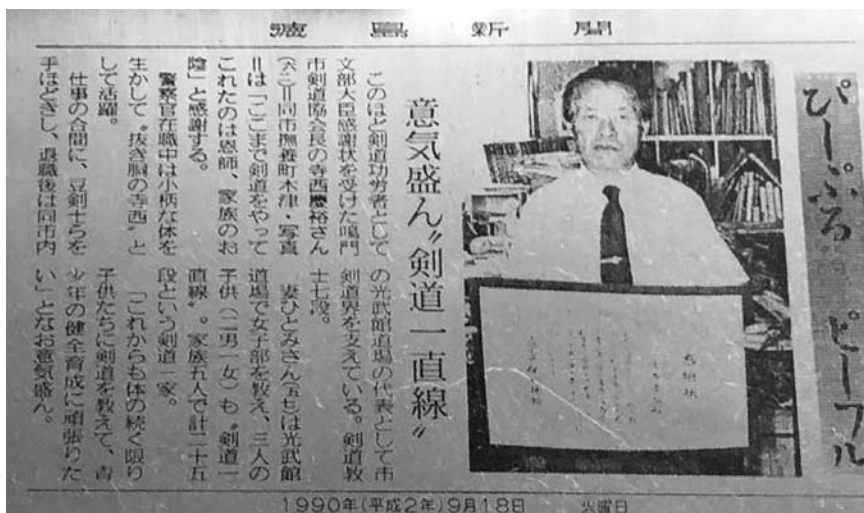 徳島新聞
ぴーぷる ピープル
感謝状
意気盛ん〝剣道一直線〟
このほど剣道功労者として
文部大臣感謝状を受けた鳴門
市剣道協会長の寺西慶裕さん
(六二)=同市撫養町木津・写真
=は「ここまで剣道をやって
これたのは恩師、家族のお
陰」と感謝する。
警察官在職中は小柄な体を
生かして〝抜き胴の寺西〟と
して活躍。
仕事の合間に、豆剣士らを
手ほどきし、退職後は同市内
の光武館道場の代表として市
剣道界を支えている。剣道教
士七段。
妻ひとみさん(五七)は光武館
道場で女子部を教え、三人の
子供(二男一女)も〝剣道一
直線〟。家族五人で計二十五
段という剣道一家。
「これからも体の続く限り
子供たちに剣道を教えて、青
少年の健全育成に頑張りた
い」となお意気盛ん。
1990年(平成2年)9月18日 火曜日